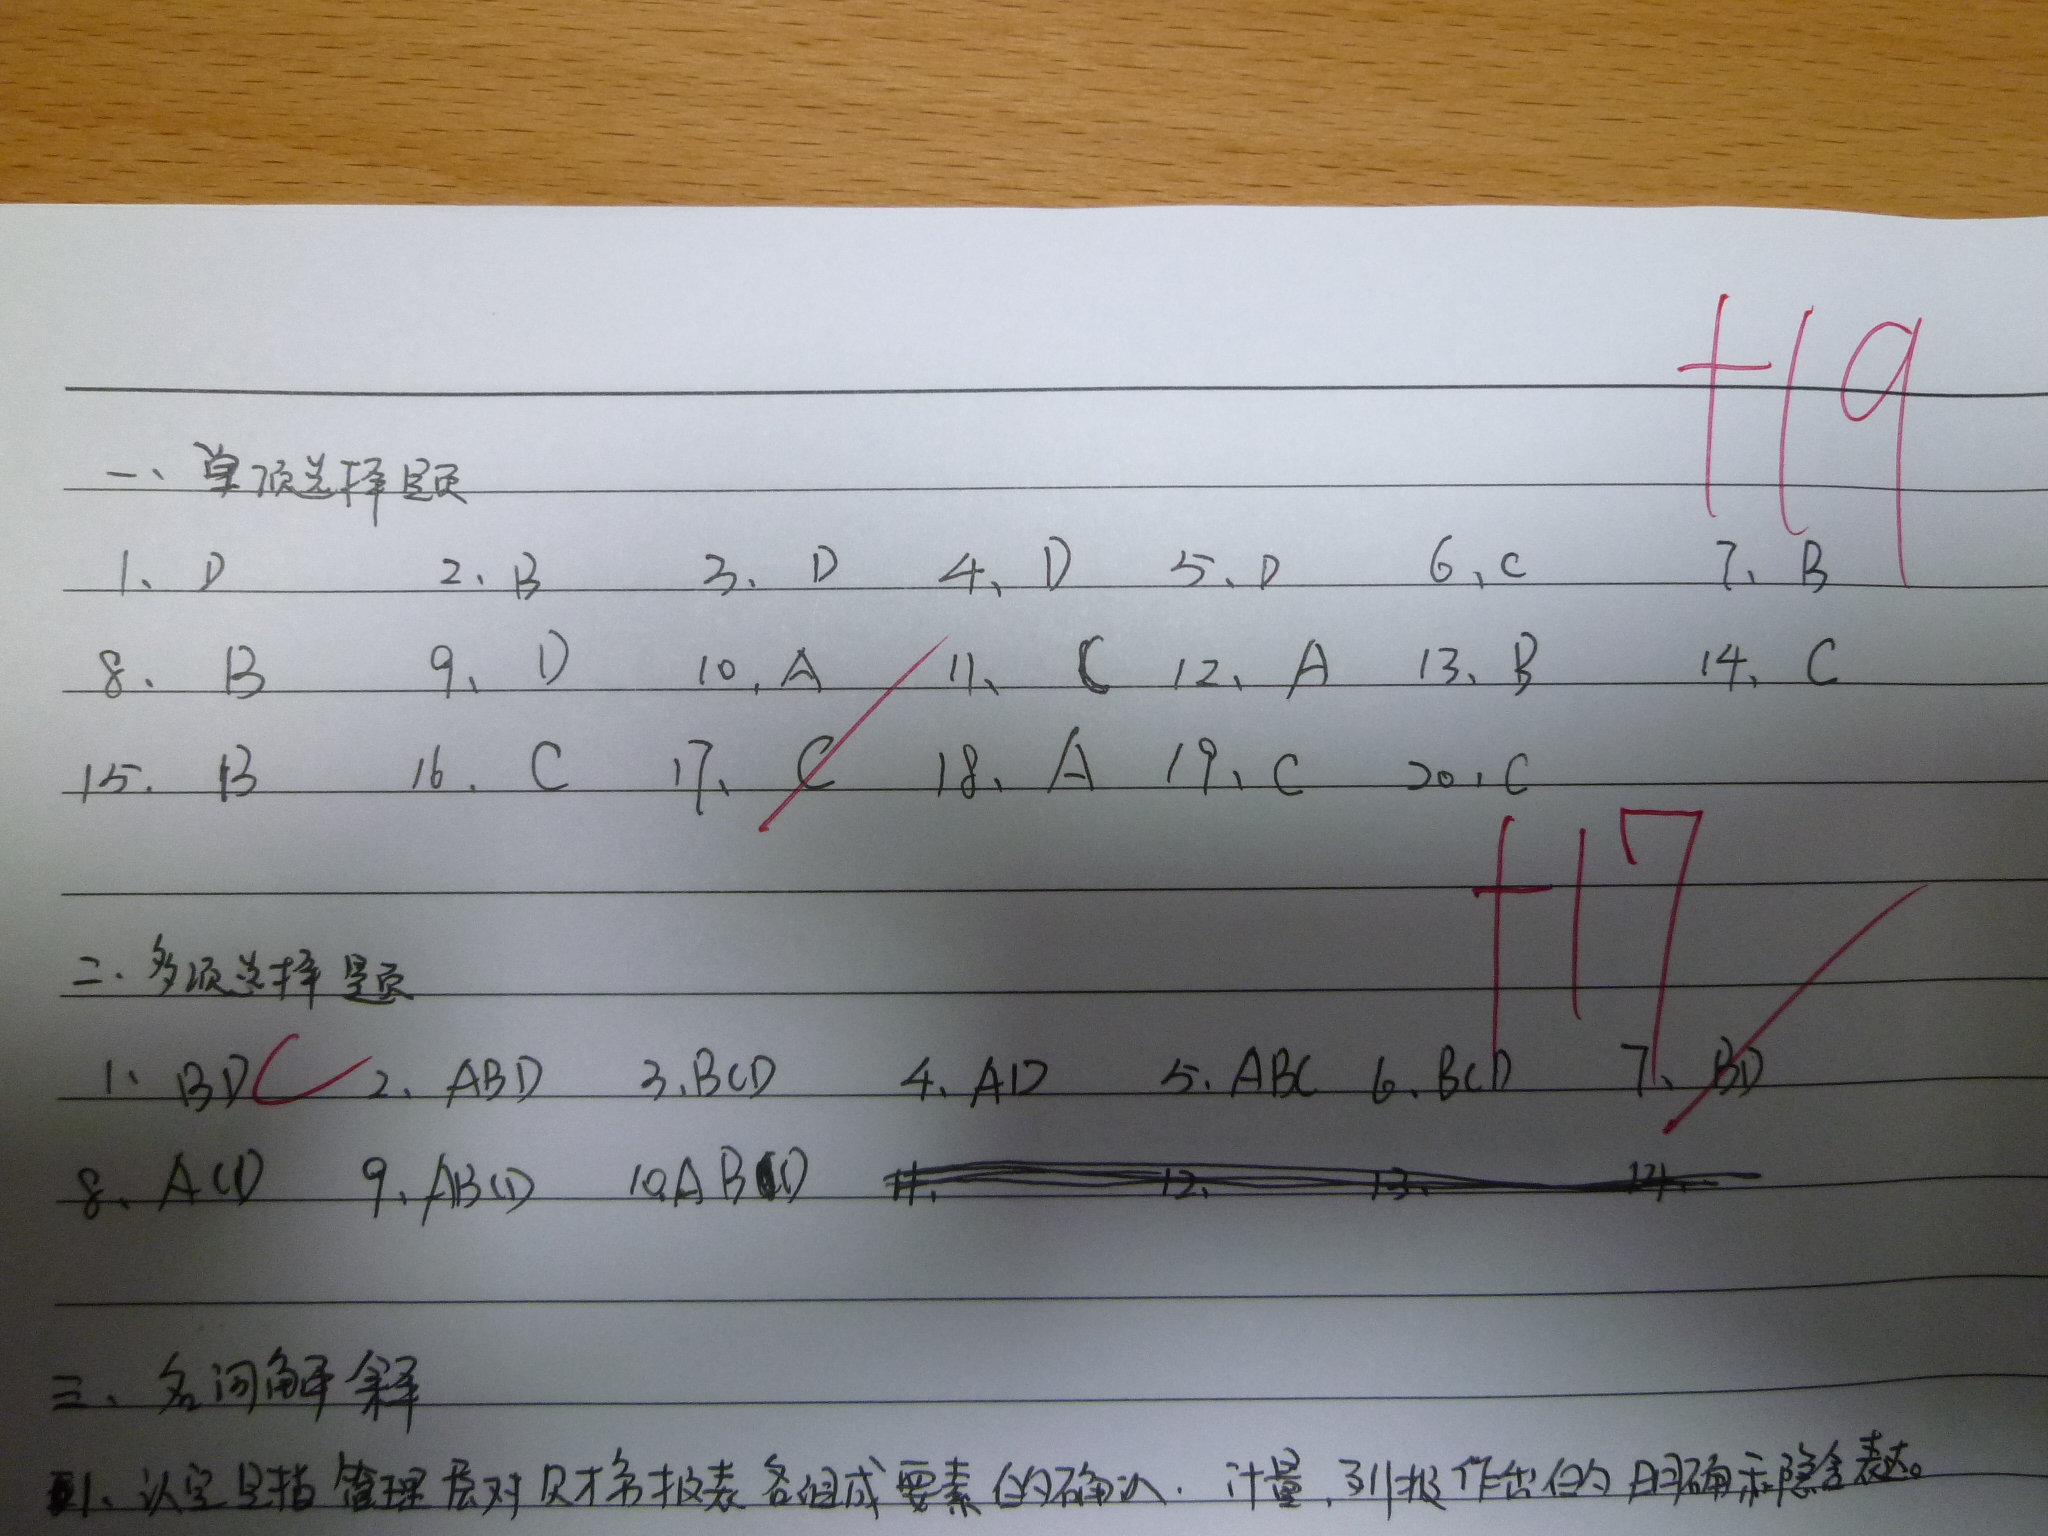 +19
一、单项选择题
1、D 2、B 3、D 4、D 5、D 6、C 7、B
8. B 9、D 10、A 11、C 12、A 13、B 14、C
15. B 16. C 17、C 18、A 19、C 20、C
+17
二、多项选择题
1、BD C 2、ABD 3、BCD 4、AD 5、ABC 6、BCD 7、BD
8、ACD 9、ABCD 10、ABCD 11. 12. 13. 14.
三、名词解释
1、认定是指管理层对财务报表各组成要素的确认、计量、列报作出的明确和隐含表达。